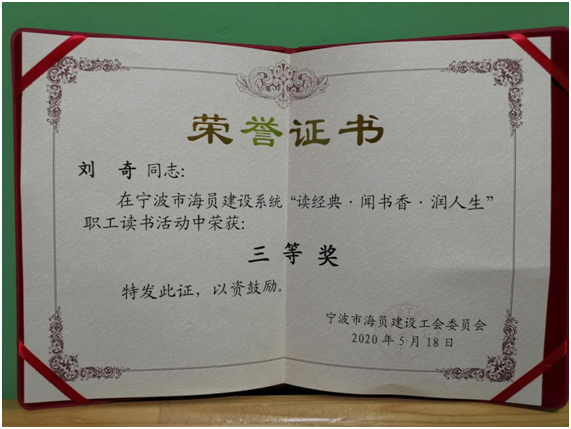 荣誉证书
刘 奇 同志:
在宁波市海员建设系统“读经典·闻书香·润人生”
职工读书活动中荣获:
三 等 奖
特发此证，以资鼓励。
宁波市海员建设工会委员会
2020年5月18日